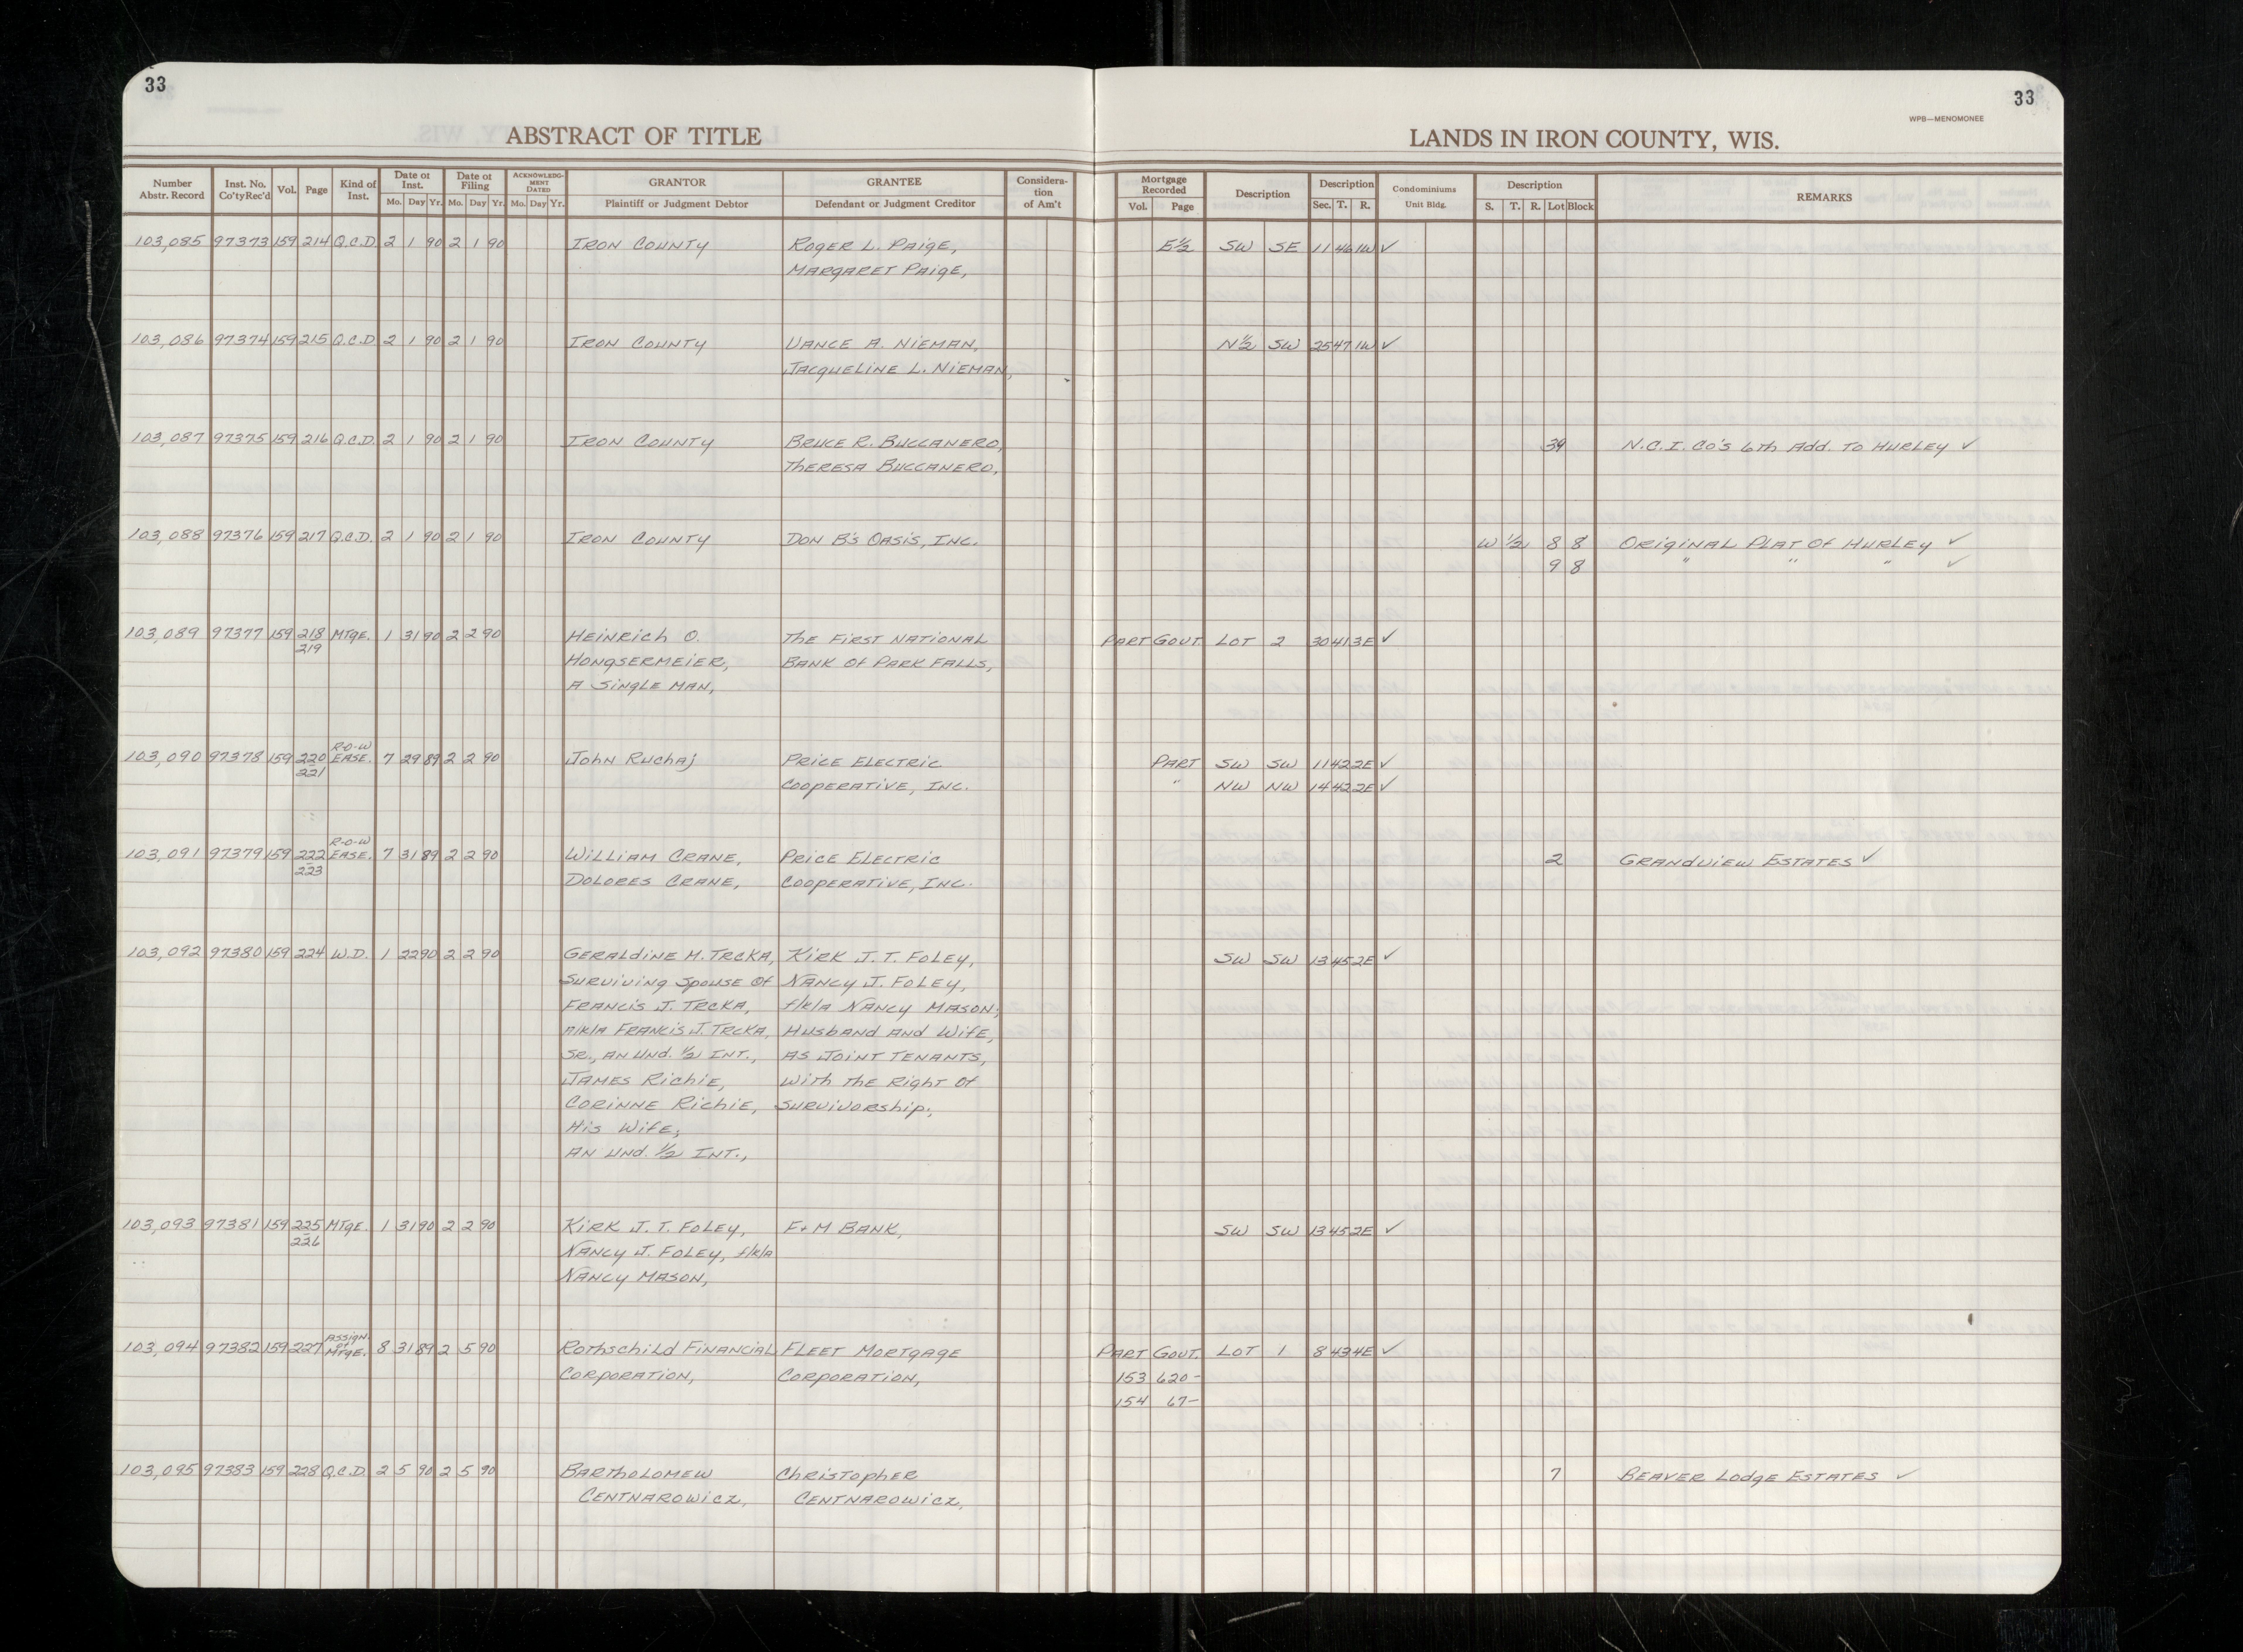 33
33
WPB—MENOMONEE
ABSTRACT OF TITLE
LANDS IN IRON COUNTY, WIS.
Number Abstr. Record | Inst. No. Co'ty Rec'd | Vol. | Page | Kind of Inst. | Date of Inst. Mo. Day Yr. | Date of Filing Mo. Day Yr. | ACKNOWLEDG-MENT DATED Mo. Day Yr. | GRANTOR Plaintiff or Judgment Debtor | GRANTEE Defendant or Judgment Creditor | Considera-tion of Am't | Mortgage Recorded Vol. Page | Description | Description Sec. T. R. | Condominiums Unit Bldg. | Description S. T. R. Lot Block | REMARKS
103,085 97373 159 214 Q.C.D. 2 1 90 2 1 90 IRON COUNTY ROGER L. PAIGE, E½ SW SE 11 46 1W ✓
MARGARET PAIGE,
103,086 97374 159 215 Q.C.D. 2 1 90 2 1 90 IRON COUNTY VANCE A. NIEMAN, N½ SW 25 47 1W ✓
JACQUELINE L. NIEMAN,
103,087 97375 159 216 Q.C.D. 2 1 90 2 1 90 IRON COUNTY BRUCE R. BUCCANERO, 39 N.C.I. CO'S 6th Add. TO HURLEY ✓
THERESA BUCCANERO,
103,088 97376 159 217 Q.C.D. 2 1 90 2 1 90 IRON COUNTY DON B'S OASIS, INC. W ½ 8 8 ORIGINAL PLAT Of HURLEY ✓
9 8 " " " ✓
103,089 97377 159 218 MTGE. 1 31 90 2 2 90 HEINRICH O. THE FIRST NATIONAL PART GOVT. LOT 2 30 41 3E ✓
219 HONGSERMEIER, BANK Of PARK FALLS,
A SINGLE MAN,
R-O-W
103,090 97378 159 220 EASE. 7 29 89 2 2 90 JOHN RUCHAJ PRICE ELECTRIC PART SW SW 11 42 2E ✓
221 COOPERATIVE, INC. " NW NW 14 42 2E ✓
R-O-W
103,091 97379 159 222 EASE. 7 31 89 2 2 90 WILLIAM CRANE, PRICE ELECTRIC 2 GRANDVIEW ESTATES ✓
223 DOLORES CRANE, COOPERATIVE, INC.
103,092 97380 159 224 W.D. 1 22 90 2 2 90 GERALDINE M. TRCKA, KIRK J. T. FOLEY, SW SW 13 45 2E ✓
SURVIVING SPOUSE Of NANCY J. FOLEY,
FRANCIS J. TRCKA, f/k/a NANCY MASON;
n/k/a FRANCIS J. TRCKA, HUSBAND AND WIFE,
SR., AN UND. ½ INT., AS JOINT TENANTS,
JAMES RICHIE, WITH THE RIGHT Of
CORINNE RICHIE, SURVIVORSHIP;,
HIS WIFE;
AN UND. ½ INT.,
103,093 97381 159 225 MTGE. 1 31 90 2 2 90 KIRK J. T. FOLEY, F+M BANK, SW SW 13 45 2E ✓
226 NANCY J. FOLEY, f/k/a
NANCY MASON,
ASSIGN. of
103,094 97382 159 227 MTGE. 8 31 89 2 5 90 ROTHSCHILD FINANCIAL FLEET MORTGAGE PART GOVT. LOT 1 8 43 4E ✓
CORPORATION, CORPORATION, 153 620-
154 67-
103,095 97383 159 228 Q.C.D. 2 5 90 2 5 90 BARTHOLOMEW CHRISTOPHER 7 BEAVER LODGE ESTATES ✓
CENTNAROWICZ, CENTNAROWICZ,